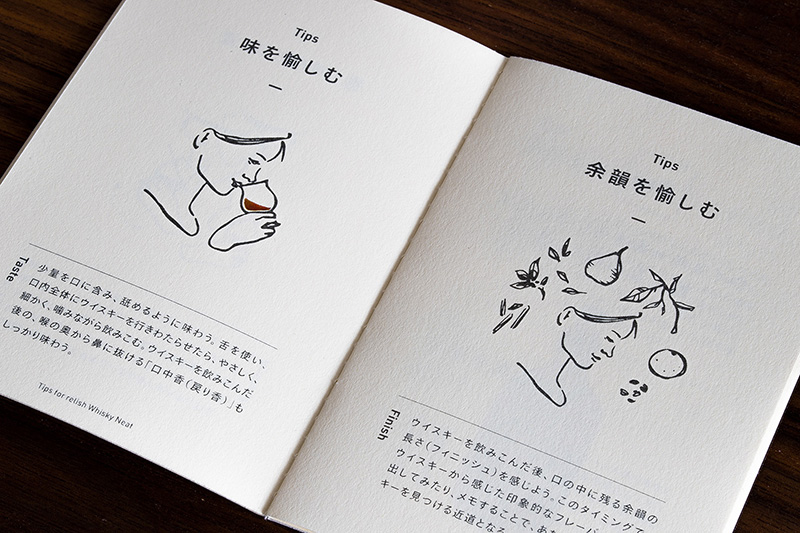 Tips
味を愉しむ
Taste
少量を口に含み、舐めるように味わう。舌を使い、
口内全体にウイスキーを行きわたらせたら、やさしく、
細かく、噛みながら飲みこむ。ウイスキーを飲みこんだ
後の、喉の奥から鼻に抜ける「口中香（戻り香）」も
しっかり味わう。
Tips for relish Whisky Neat
Tips
余韻を愉しむ
Finish
ウイスキーを飲みこんだ後、口の中に残る余韻の
長さ（フィニッシュ）を感じよう。このタイミングで
ウイスキーから感じた印象的なフレーバ
出してみたり、メモすることで、あな
キーを見つける近道となる